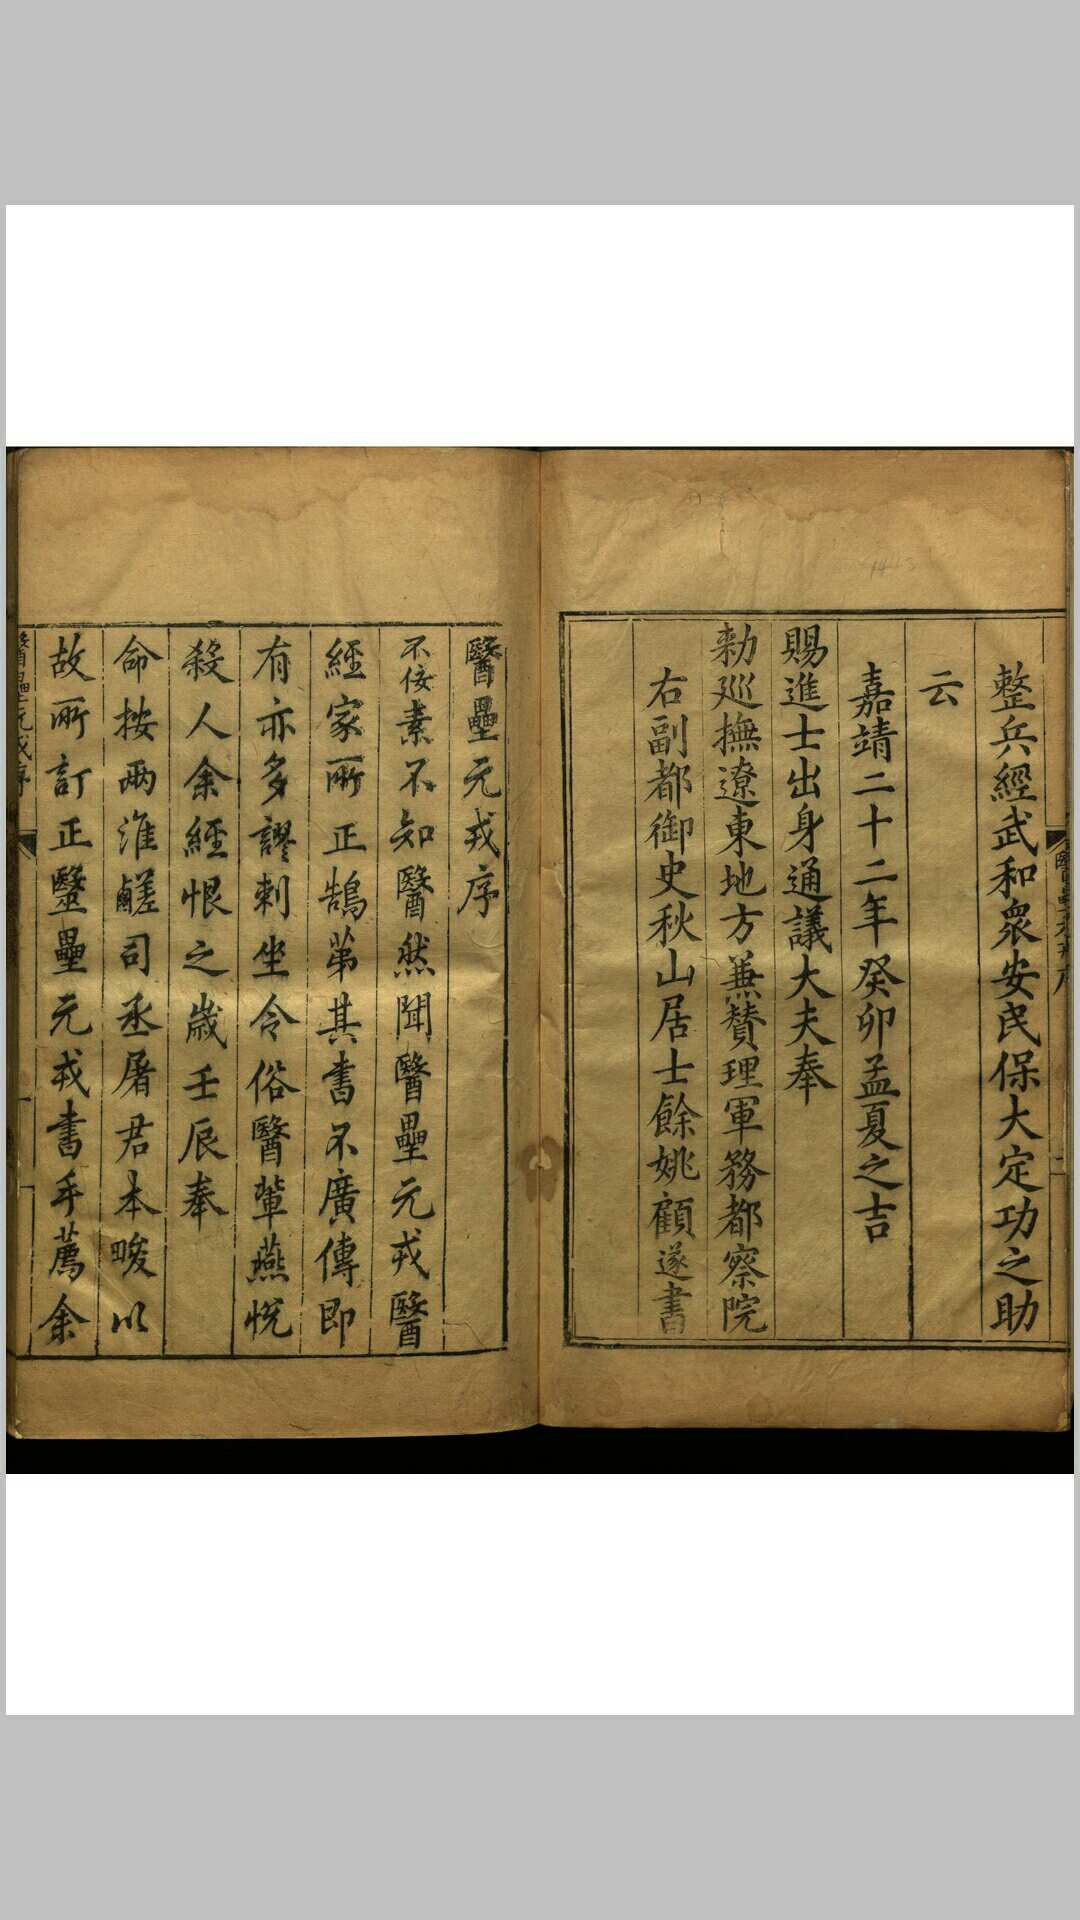 整兵經武和衆安民保大定功之助
云
嘉靖二十二年癸卯孟夏之吉
賜進士出身通議大夫奉
勑廵撫遼東地方兼贊理軍務都察院
右副都御史秋山居士餘姚顧遂書
醫壘元戎序
不佞素不知醫然聞醫壘元戎醫
經家所正鵠第其書不廣傳即
有亦多謬剌坐令俗醫輩燕悅
殺人余經恨之歲壬辰奉
命按兩淮鹺司丞屠君本畯以
故所訂正毉壘元戎書手薦余
醫壘元戎序